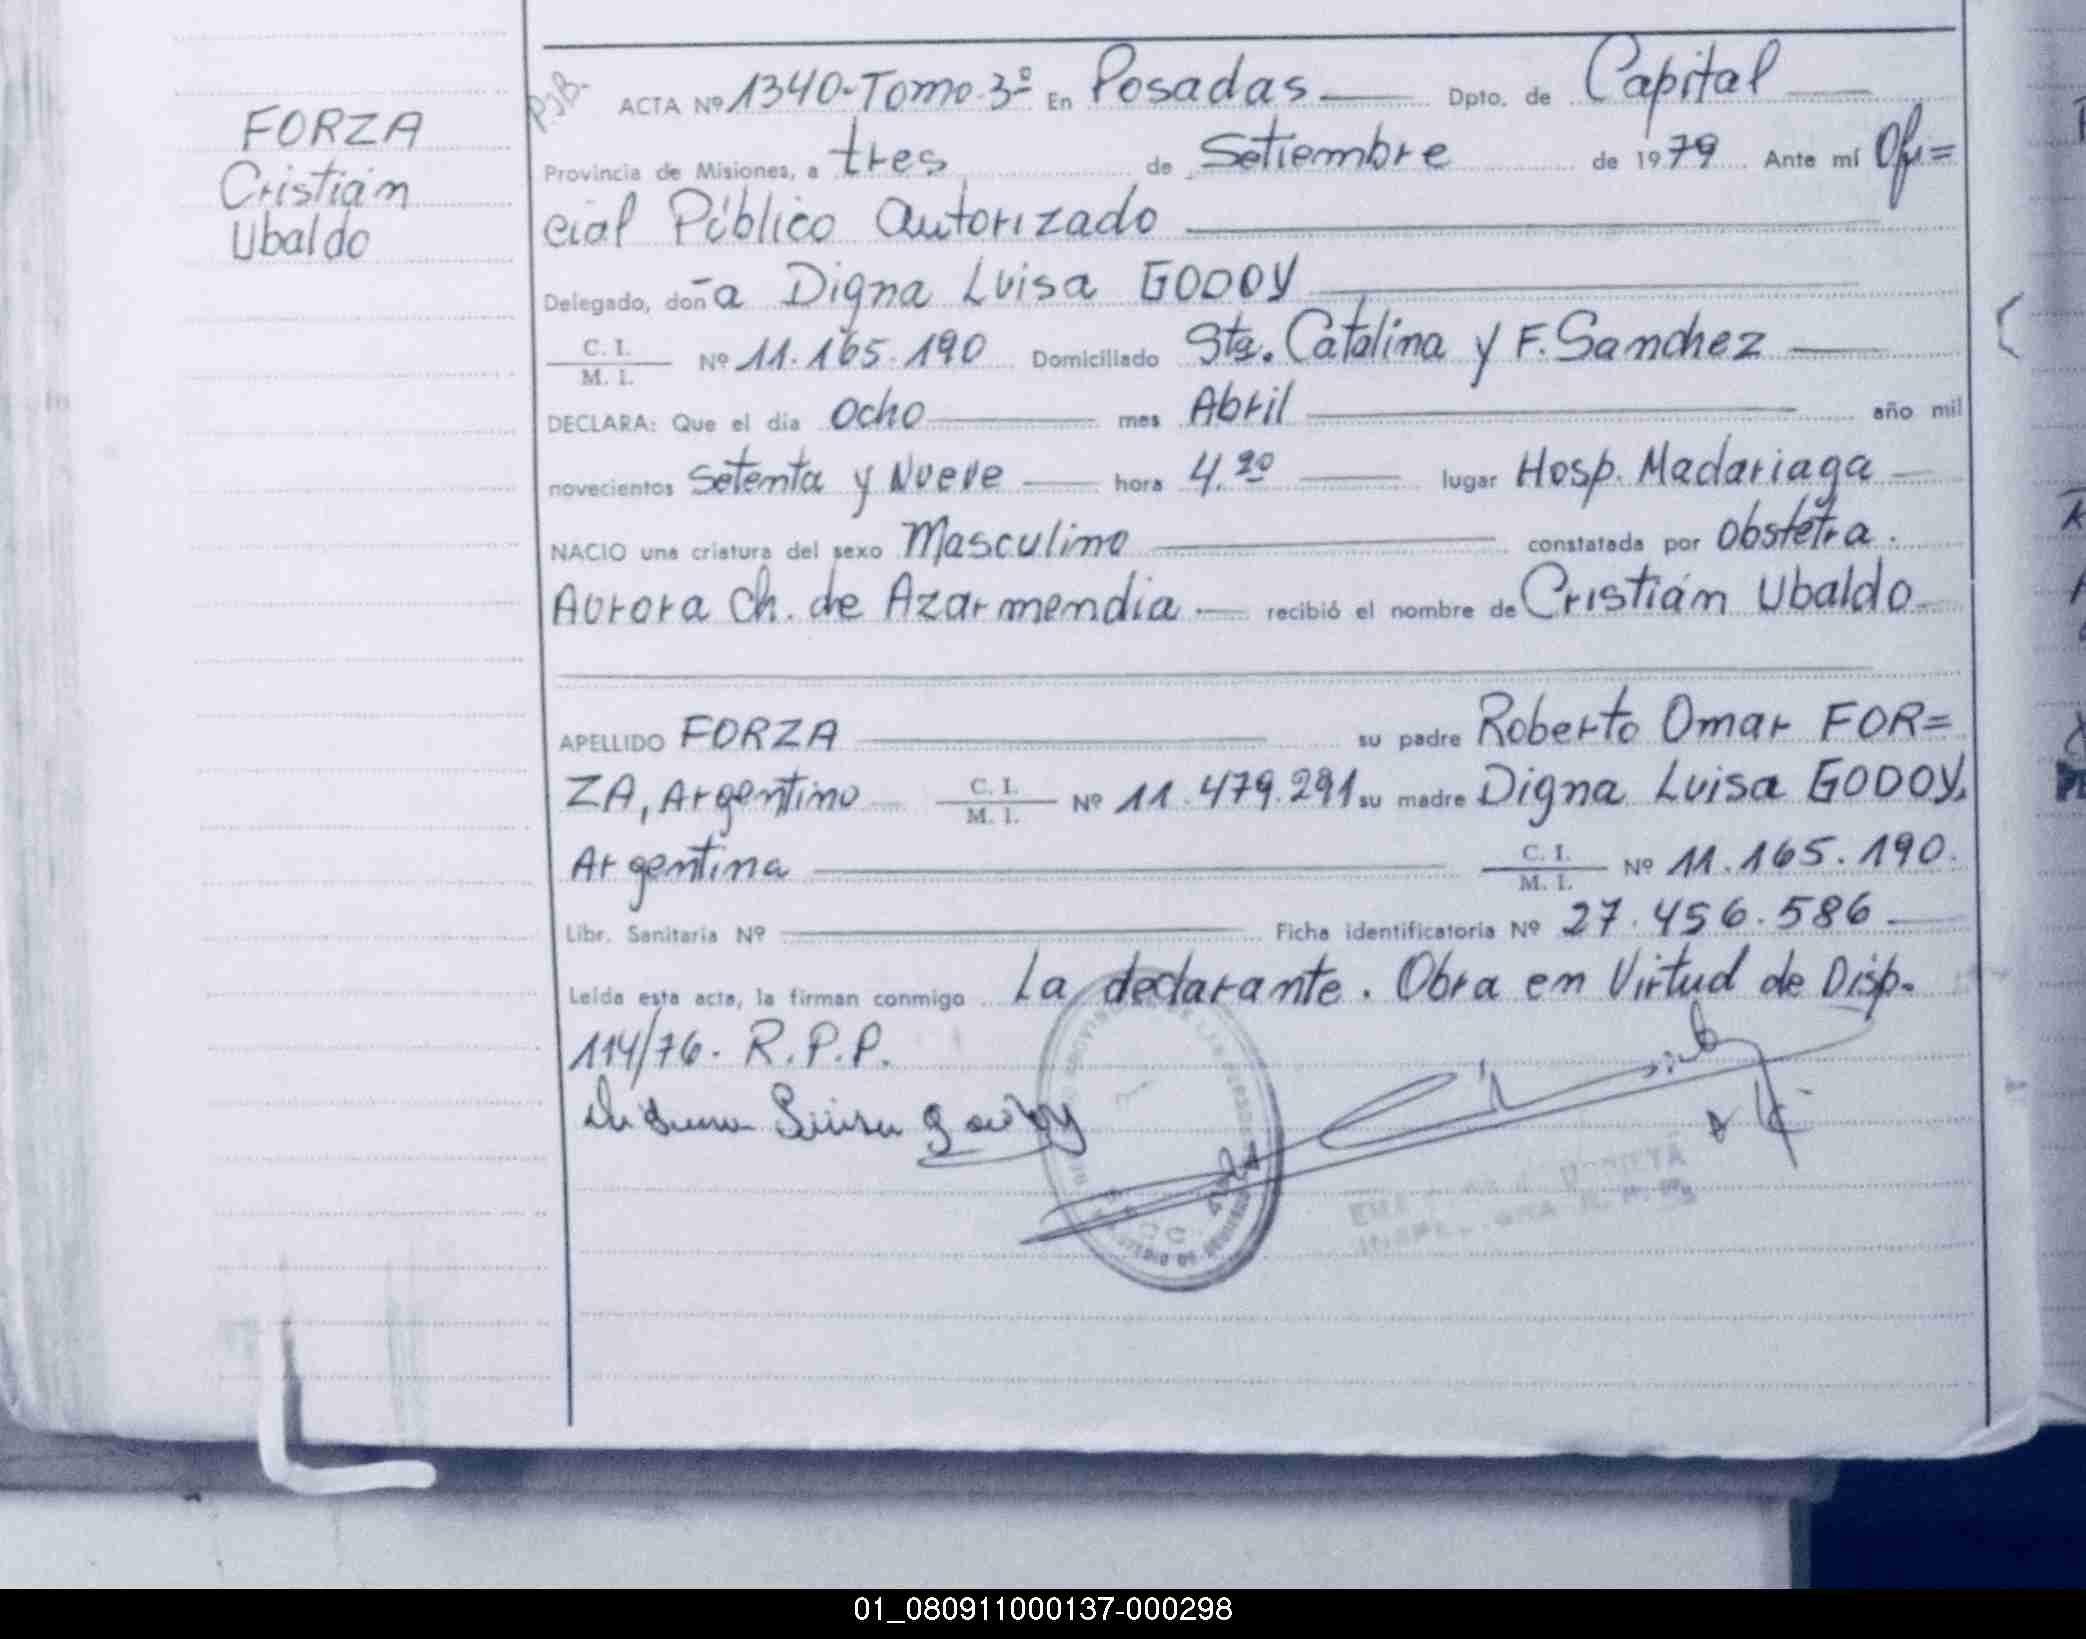 FORZA
Cristián
Ubaldo
ACTA Nº 1340-Tomo 3º En Posadas Dpto. de Capital
Provincia de Misiones, a tres de Setiembre de 1979 Ante mí Ofi=
cial Público Autorizado
Delegado, doña Digna Luisa GODOY
C. I.
M. I. Nº 11.165.190 Domiciliado Sta. Catalina y F. Sanchez
DECLARA: Que el día Ocho mes Abril año mil
novecientos Setenta y Nueve hora 4.20 lugar Hosp. Madariaga
NACIO una criatura del sexo Masculino constatada por Obstétra.
Aurora Ch. de Azarmendia recibió el nombre de Cristián Ubaldo
APELLIDO FORZA su padre Roberto Omar FOR=
ZA, Argentino C. I. M. I. Nº 11.479.291 su madre Digna Luisa GODOY,
Argentina C. I. M. I. Nº 11.165.190.
Libr. Sanitaria Nº Ficha identificatoria Nº 27.456.586
Leída esta acta, la firman conmigo La declarante. Obra en Virtud de Disp.
114/76. R.P.P.
01_080911000137-000298